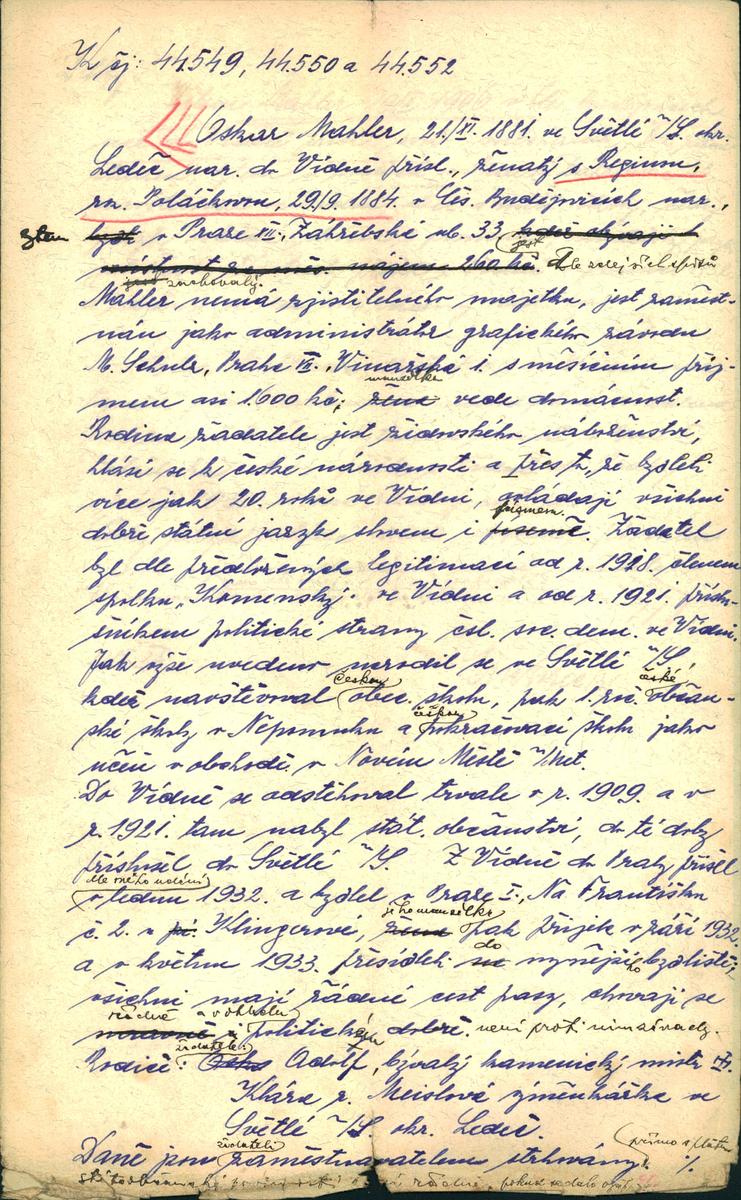 K čj: 44.549, 44.550 a 44.552
Oskar Mahler, 21./XI. 1881. ve Světlé n/S. okr.
Ledeč nar. do Vídně přísl., ženatý s Reginou,
roz. Poláčkovou, 29./9. 1884. v Čes. Budějovicích nar.,
bytem v Praze VII., Záhřebské ul. 33
jest zachovalý.
Mahler nemá zjistitelného majetku, jest zaměst-
nán jako administrátor grafického závodu
M. Schulz, Praha VII., Vinařská 1. s měsíčním příj-
mem asi 1.600 kč; manželka vede domácnost.
Rodina žadatele jest židovského náboženství,
hlásí se k české národnosti a přes to, že bydleli
více jak 20. roků ve Vídni, ovládají všichni
dobře státní jazyk slovem i písmem. Žadatel
byl dle předložených legitimací od r. 1928. členem
spolku „Komenský" ve Vídni a od r. 1921. přísl-
ušníkem politické strany čsl. soc. dem. ve Vídni.
Jak výše uvedeno narodil se ve Světlé n/S.,
kdež navštěvoval českou obec. školu, pak 1. roč. české občan-
ské školy v Nepomuku a českou pokračovací školu jako
učeň v obchodě v Novém Městě n/Met.
Do Vídně se odstěhoval trvale v r. 1909. a v
r. 1921. tam nabyl stát. občanství, do té doby
příslušel do Světlé n/S. Z Vídně do Prahy přišel
v lednu 1932. a bydlel v Praze I., Na Františku
č. 2. u Klingerové, jeho manželka pak přijela v září 1932.
a v květnu 1933. přesídleli do nynějšího bydliště;
všichni mají řádné cest. pasy, chovají se
řádně a v ohledu politickém není proti nim závady.
Rodiče: žadatele: Adolf, bývalý kamenický mistr
Klára r. Meislová výměnkářka ve
Světlé n/S. okr. Ledeč.
Daně jsou žadateli zaměstnavatelem strhovány přímo z platu